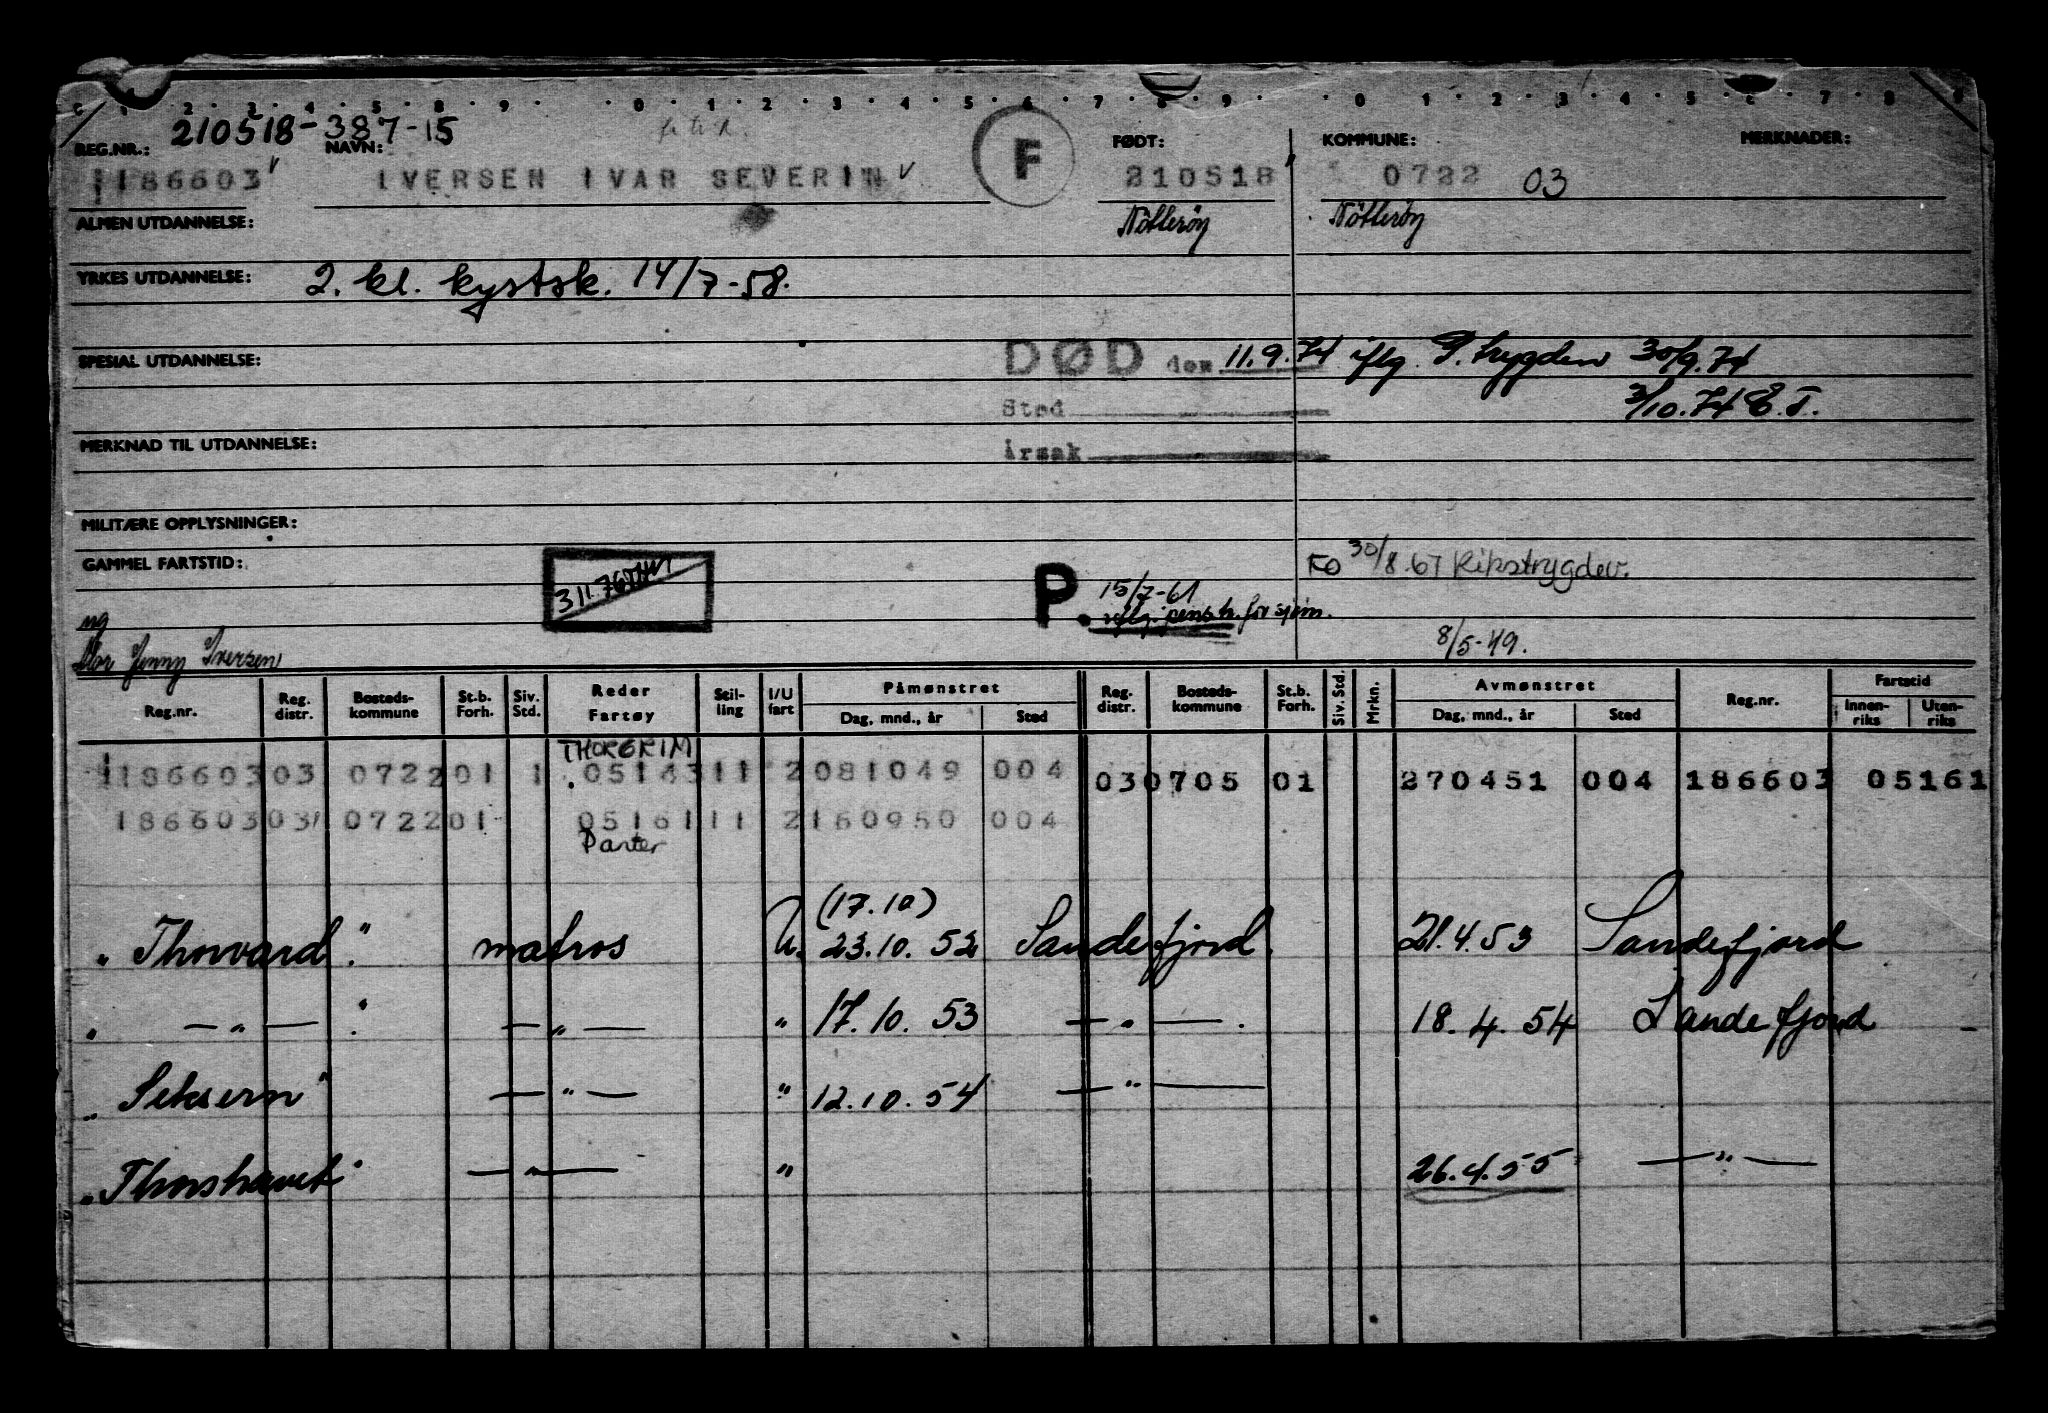 C 1 2 3 4 5 8 9 0 1 2 3 4 5 6 7 8 9 0 1 2 3 4 5 6 7 8 9
210518-387-15
REG.NR.: NAVN: FØDT: KOMMUNE: MERKNADER:
186603 IVERSEN IVAR SEVERIN F 210518 0722 03
ALMEN UTDANNELSE: Nötteröy Nötteröy
YRKES UTDANNELSE: 2. kl. kystsk. 14/7-58.
SPESIAL UTDANNELSE: DØD den 11.9.74 iflg. P. trygden 30/9.74
Sted 3/10.74 E.T.
MERKNAD TIL UTDANNELSE: Årsak
MILITÆRE OPPLYSNINGER:
GAMMEL FARTSTID: FO 30/8.67 Rikstrygdev.
P. 15/7-61
ug iflg. penstr. for sjøm.
Mor Jenny Iversen 8/5-49.
Reg.nr. Reg. distr. Bosteds-kommune St.b. Forh. Siv. Std. Reder Fartøy Stil-ling I/U fart Påmønstret Dag, mnd., år Sted Reg. distr. Bosteds-kommune St.b. Forh. Siv. Std. Mrkn. Avmønstret Dag, mnd., år Sted Reg.nr. Fartstid Innen-riks Uten-riks
THORGRIM
186603 03 0722 01 1 05143 11 2 081049 004 03 0705 01 270451 004 186603 05161
186603 03 0722 01 05161 11 2 160950 004
Panter
(17.10)
" Thorvard " matros U. 23.10.52 Sandefjord. 21.4.53 Sandefjord
" — " — " — " — " 17.10.53 — " — . 18.4.54 Sandefjord -
" Seksern " — " — " 12.10.54 — " —
" Thorshavet " — " — " 26.4.55 — " —